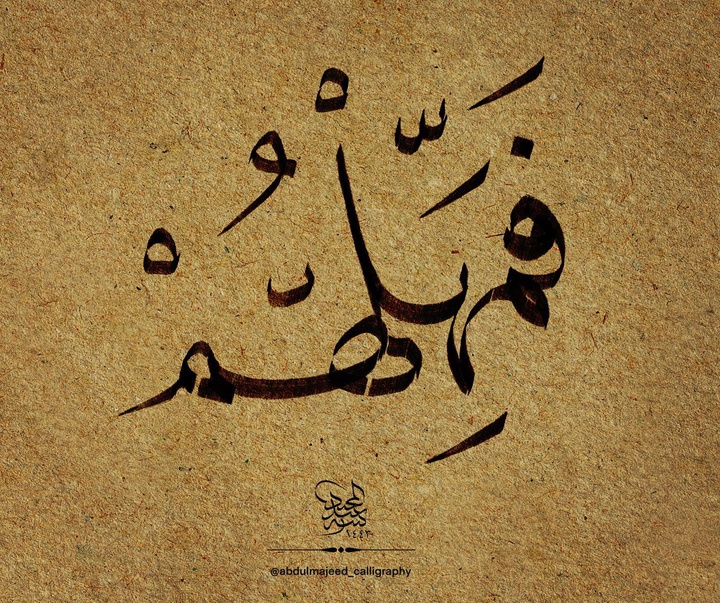 فَمَهِّلْهُمْ
كتبه عبد المجيد
١٤٤٣
@abdulmajeed_calligraphy